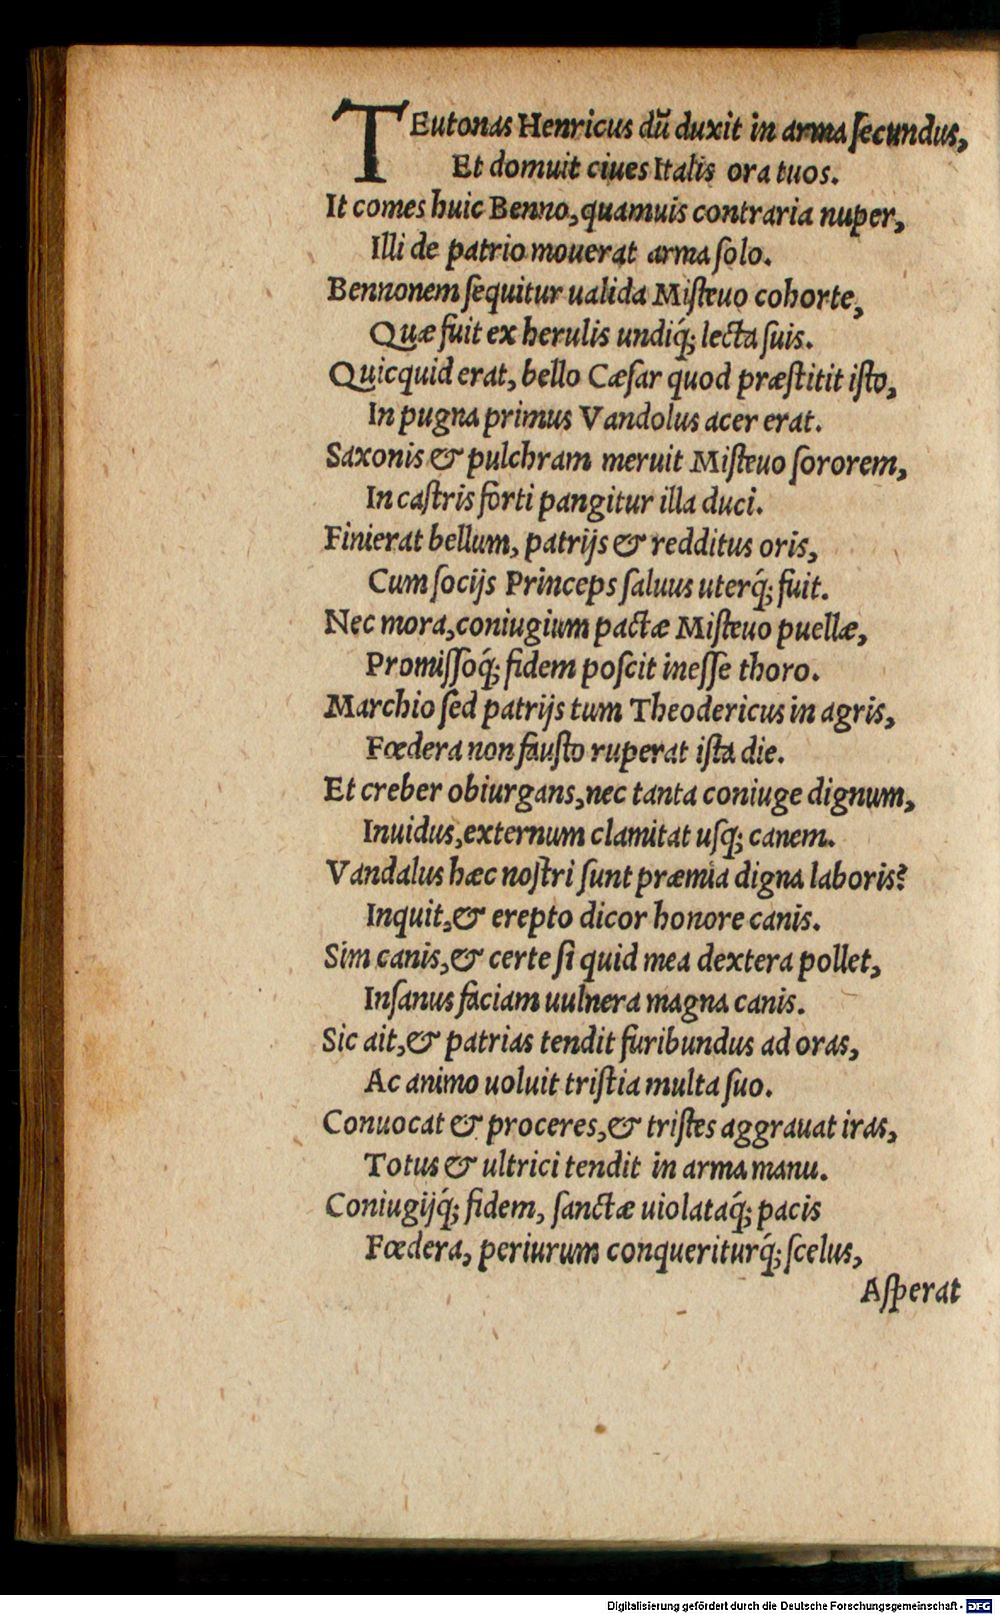 TEutonas Henricus dū duxit in arma ſecundus,
Et domuit ciues Italis ora tuos.
It comes huic Benno, quamuis contraria nuper,
Illi de patrio mouerat arma ſolo.
Bennonem ſequitur ualida Miſteuo cohorte,
Quæ fuit ex herulis undiq́; lecta ſuis.
Quicquid erat, bello Cæſar quod præſtitit iſto,
In pugna primus Vandolus acer erat.
Saxonis & pulchram meruit Miſteuo ſororem,
In caſtris forti pangitur illa duci.
Finierat bellum, patrijs & redditus oris,
Cum ſocijs Princeps ſaluus uterq́; fuit.
Nec mora, coniugium pactæ Miſteuo puellæ,
Promiſſoq́; fidem poſcit ineſſe thoro.
Marchio ſed patrijs tum Theodericus in agris,
Fœdera non fauſto ruperat iſta die.
Et creber obiurgans, nec tanta coniuge dignum,
Inuidus, externum clamitat uſq; canem.
Vandalus hæc noſtri ſunt præmia digna laboris?
Inquit, & erepto dicor honore canis.
Sim canis, & certe ſi quid mea dextera pollet,
Inſanus faciam uulnera magna canis.
Sic ait, & patrias tendit furibundus ad oras,
Ac animo uoluit triſtia multa ſuo.
Conuocat & proceres, & triſtes aggrauat iras,
Totus & ultrici tendit in arma manu.
Coniugijq́; fidem, ſanctæ uiolataq́; pacis
Fœdera, periurum conqueriturq́; ſcelus,
Aſperat
Digitalisierung gefördert durch die Deutsche Forschungsgemeinschaft - DFG